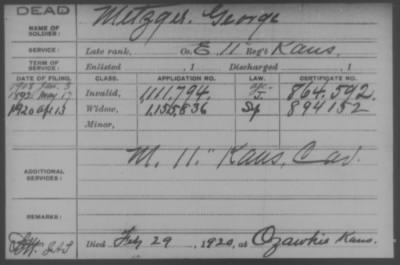 DEAD
NAME OF SOLDIER: Metzger, George
SERVICE: Late rank, Co. E, 11" Reg't Kans.
TERM OF SERVICE: Enlisted , 1 Discharged , 1
DATE OF FILING. CLASS. APPLICATION NO. LAW. CERTIFICATE NO.
1908 Jan. 3
1892 May 17 Invalid, 1,111.794. J. 864.592.
1920 Apl 13 Widow, 1,155,836 894152
Minor,
ADDITIONAL SERVICES: M. 11." Kans. Cav.
REMARKS:
Died Feby 29, 1920, at Ozawkie Kans.